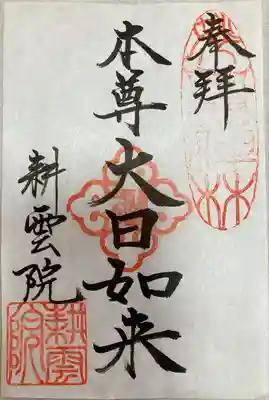 奉拝
本尊 大日如来
耕雲院
耕雲院